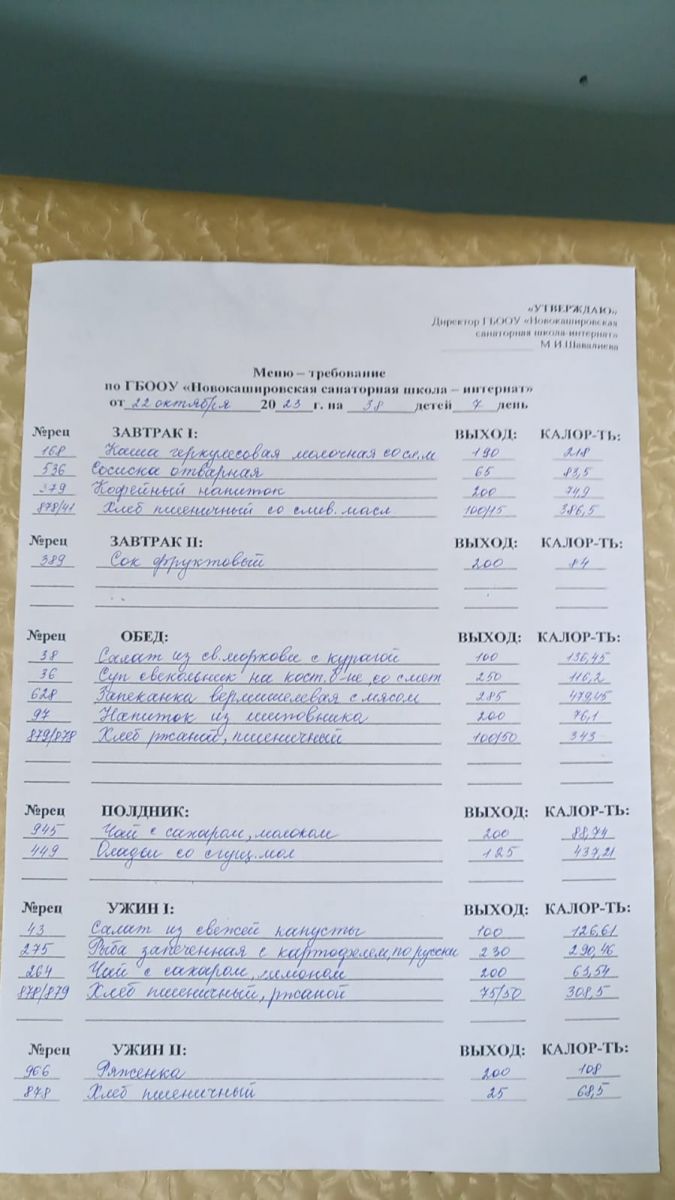 «УТВЕРЖДАЮ»
Директор ГБООУ «Новокашировская
санаторная школа-интернат»
М.И.Шавалиева
Меню – требование
по ГБООУ «Новокашировская санаторная школа – интернат»
от 22 октября 20 23 г. на 38 детей 7 день
№рец ЗАВТРАК I: ВЫХОД: КАЛОР-ТЬ:
168 Каша геркулесовая молочная со сл.м 190 218
536 Сосиска отварная 65 83,5
379 Кофейный напиток 200 749
878/41 Хлеб пшеничный со слив. масл 100/15 386,5
№рец ЗАВТРАК II: ВЫХОД: КАЛОР-ТЬ:
389 Сок фруктовый 200 84
№рец ОБЕД: ВЫХОД: КАЛОР-ТЬ:
38 Салат из св.моркови с курагой 100 136,45
36 Суп свекольник на кост. б-не, со смет 250 116,2
628 Запеканка вермишелевая с мясом 285 479,45
97 Напиток из шиповника 200 76,1
879/878 Хлеб ржаной, пшеничный 100/50 343
№рец ПОЛДНИК: ВЫХОД: КАЛОР-ТЬ:
945 Чай с сахаром, молоком 200 88,74
449 Оладьи со сгущ. мол 125 437,21
№рец УЖИН I: ВЫХОД: КАЛОР-ТЬ:
43 Салат из свежей капусты 100 126,61
275 Рыба запеченная с картофелем, по русски 230 290,46
264 Чай с сахаром, лимоном 200 63,54
878/879 Хлеб пшеничный, ржаной 75/50 308,5
№рец УЖИН II: ВЫХОД: КАЛОР-ТЬ:
966 Ряженка 200 108
878 Хлеб пшеничный 25 68,5